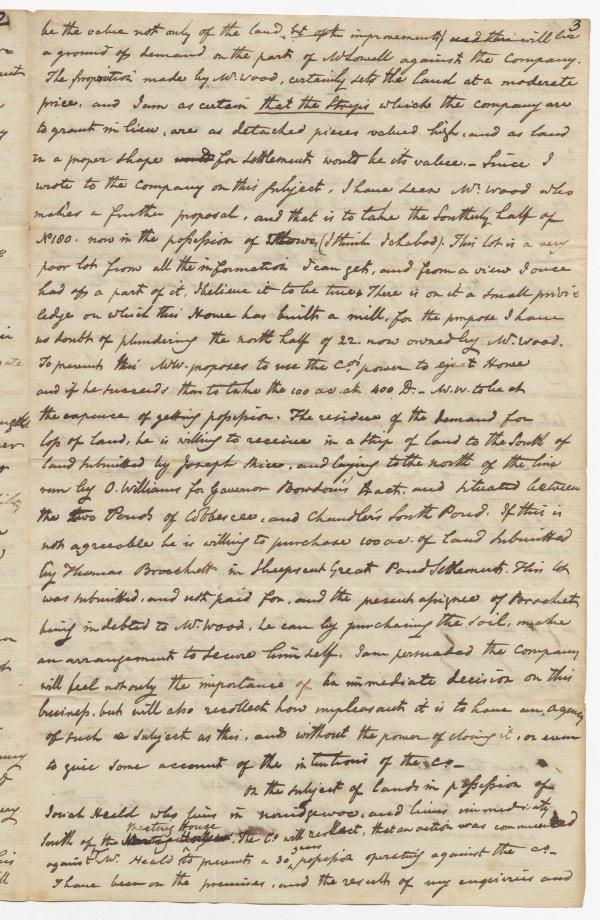 3
be the value not only of the land, but of the improvements, and this will be
a ground of demand on the part of Mr Lowell against the Company.
The proposition made by Mr. Wood, certainly sets the land at a moderate
price, and I am as certain that the Strips which the company are
to grant in lieu, are as detached pieces valued high, and as land
in a proper shape for settlement would be its value. – Since I
wrote to the Company on this subject, I have seen Mr. Wood who
makes a further proposal, and that is to take the Southerly half of
No 180. now in the possession of Howe, (I think Ichabod). This lot is a very
poor lot from all the information I can get, and from a view I once
had of a part of it, I believe it to be true. There is on it a small privi
ledge on which this Howe has built a mill, for the purpose I have
no doubt of plundering the north half of 22 now owned by Mr. Wood.
To prevent this Mr W. proposes to use the Cos' power to eject Howe
and if he succeeds then to take the 100 ac. at 400 D. – Mr. W. to be at
the expence of getting possession. The residue of the demand for
loss of land, he is willing to receive in a Strip of land to the South of
land submitted by Joseph Rice, and laying to the north of the line
run by O. Williams for Govenor Bowdoin's Tract, and situated between
the two Ponds of Cobbescee, and Chandler's South Pond. If this is
not agreeable he is willing to purchase 100 ac. of land submitted
by Thomas Brackett in Sheepscut Great Pond Settlement. This lot
was submitted, and not paid for, and the present assignee of Bracket
being indebted to Mr. Wood, he can by purchasing the soil, make
an arrangement to secure himself. I am persuaded the Company
will feel not only the importance of an immediate decision on this
business, but will also recollect how unpleasant it is to have an agency
of such a subject as this, and without the power of closing it, or even
to give some account of the intentions of the Co –
On the subject of lands in possession of
Josiah Heald who lives in norridgewoc, and lives immediately
South of the Meeting House. The Co. will recollect, that an action was commenced
against Mr. Heald to prevent a 30 years possession operating against the Co.
I have been on the premises, and the results of my enquiries and